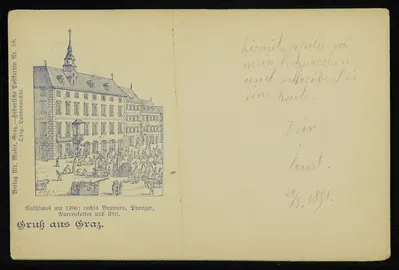 Verlag Alr. Mater, Graz. — Historische Postkarten Nr. 16.
Orig. Landesarchiv.
Rathhaus um 1796; rechts Brunnen, Pranger,
Narrenkotter und Ölst.
Gruß aus Graz.
Hiemit erfülle ich
mein Versprechen
und schreibe
eine Karte.
Dein
Ernst.